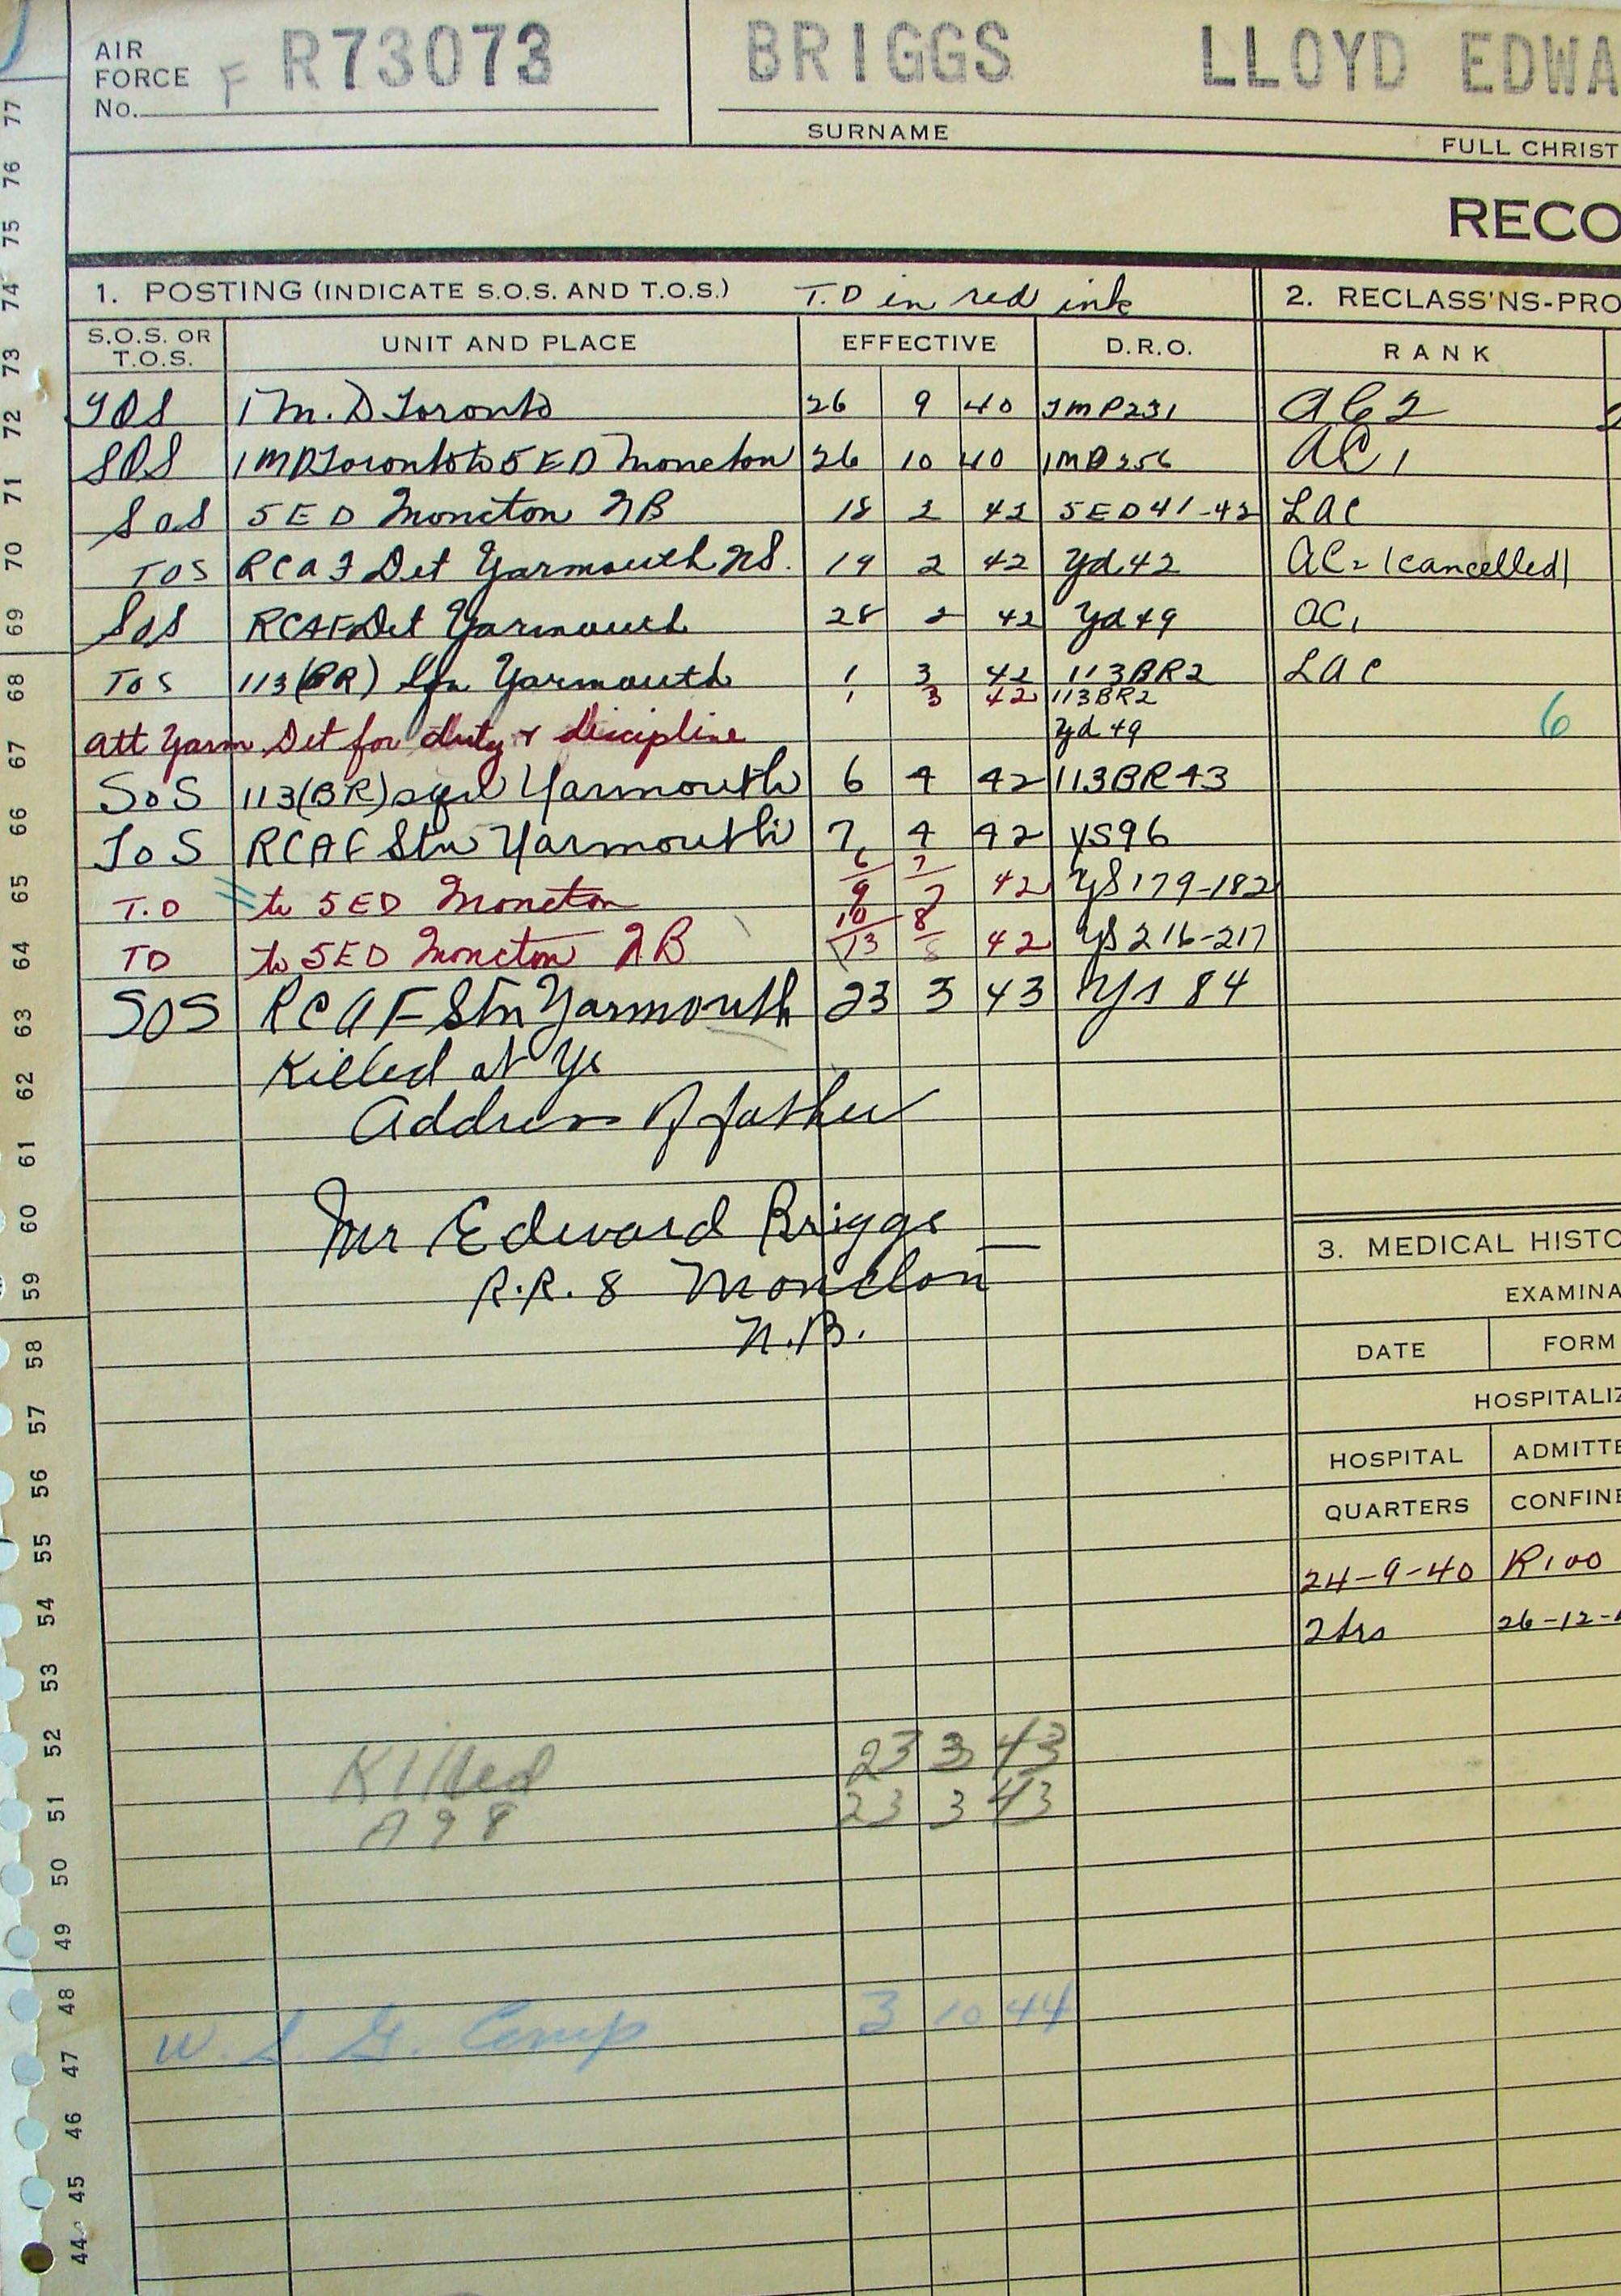 AIR FORCE No. F R73073 BRIGGS LLOYD EDWA
SURNAME FULL CHRIST
RECO
1. POSTING (INDICATE S.O.S. AND T.O.S.) T.D in red ink 2. RECLASS'NS-PRO
S.O.S. OR T.O.S. UNIT AND PLACE EFFECTIVE D.R.O. RANK
TOS 1 M. D Toronto 26 9 40 1MP231 AC2
SOS 1MD Toronto to 5 ED Moncton 26 10 40 1MD256 AC1
SoS 5 E D Moncton NB 18 2 42 5ED41-42 LAC
TOS RCAF Det Yarmouth NS. 19 2 42 Yd42 AC2 (cancelled)
SoS RCAF Det Yarmouth 28 2 42 Yd49 AC1
TOS 113(BR) Sqn Yarmouth 1 3 42 113BR2 LAC
1 3 42 113BR2
att Yarm Det for duty & discipline Yd 49 6
SoS 113(BR) sqd Yarmouth 6 4 42 113BR43
ToS RCAF Stn Yarmouth 7 4 42 YS96
T.D to 5ED Moncton 6/9 7/7 42 YS179-182
TD to 5ED Moncton NB 10/13 8/8 42 YS216-217
SOS RCAF Stn Yarmouth 23 3 43 Ys 84
Killed at Ys
Address of father
Mr Edward Briggs
R.R. 8 Moncton
N.B.
3. MEDICAL HISTO
EXAMINA
DATE FORM
HOSPITALIZ
HOSPITAL ADMITTE
QUARTERS CONFINE
24-9-40 R100
2hrs 26-12-
Killed 23 3 43
A98 23 3 43
W. S. G. Comp 3 10 44
77
76
75
74
73
72
71
70
69
68
67
66
65
64
63
62
61
60
59
58
57
56
55
54
53
52
51
50
49
48
47
46
45
44